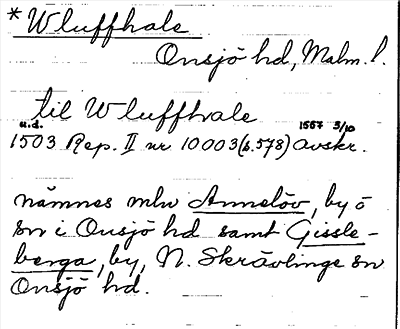 *Wluffhale
Onsjö hd, Malm. l.
til Wluffhale
u.d. 1567 3/10
1503 Rep. II nr 10003 (s. 578) avskr.
nämnes mlw Annelöv, by o
sn i Onsjö hd samt Gissle-
berga, by, N. Skrävlinge sn
Onsjö hd.